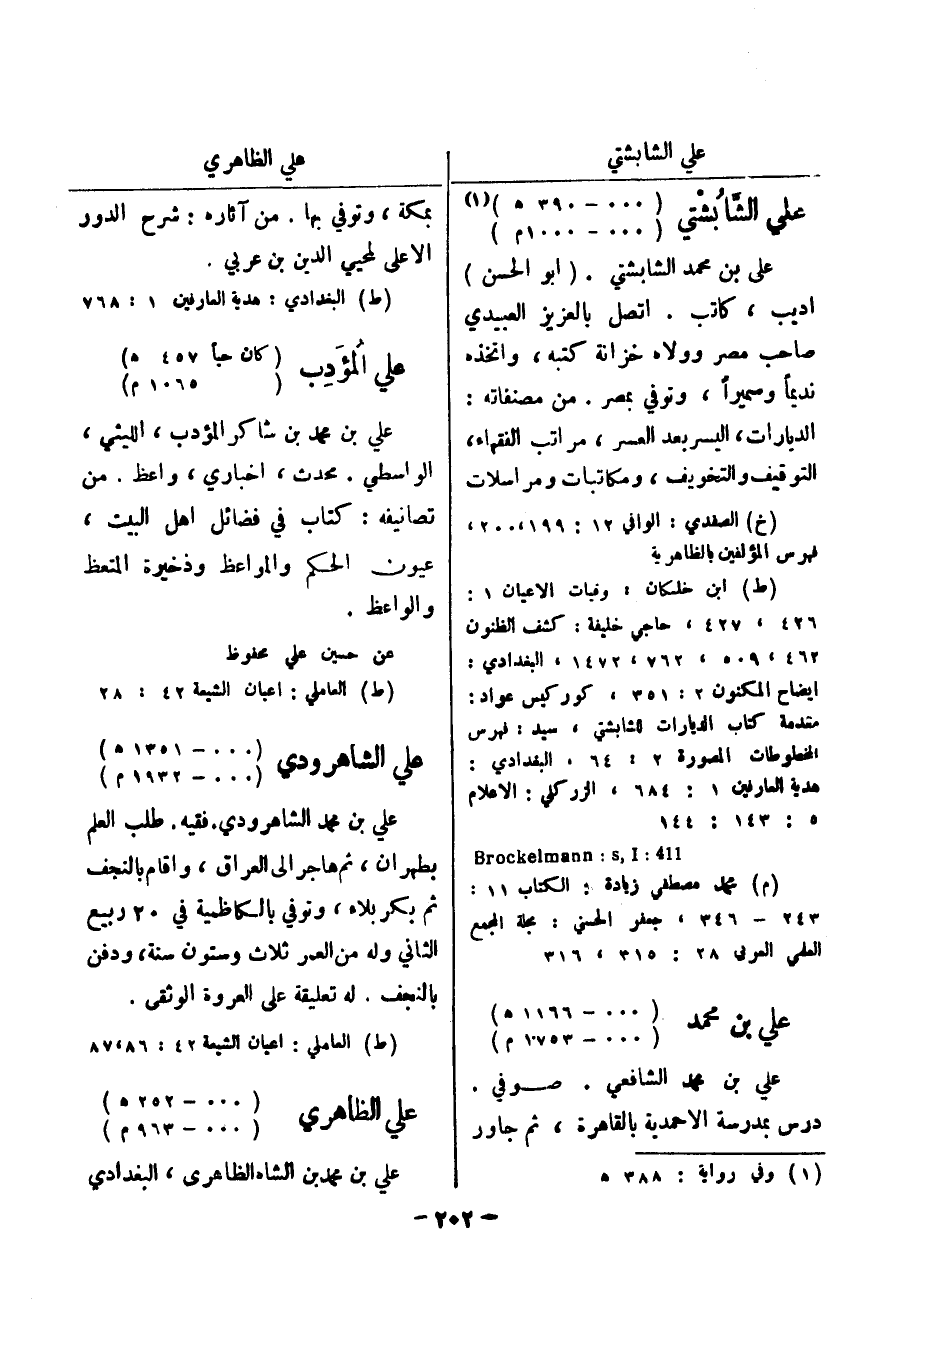 علي الشابشتي
علي الشَّابُشْتي (٠٠٠ - ٣٩٠ ه)(١)
(٠٠٠ - ١٠٠٠م)
علي بن محمد الشابشتي . (ابو الحسن)
اديب ، كاتب . اتصل بالعزيز العبيدي
صاحب مصر وولاه خزانة كتبه، واتخذه
نديماً وسميراً ، وتوفي بمصر . من مصنفاته :
الديارات، اليسر بعد العسر ، مراتب الفقهاء،
التوقيف والتخويف ، ومكاتبات ومراسلات
(خ) الصفدي : الوافي ١٢ : ١٩٩،٢٠٠،
فهرس المؤلفين بالظاهرية
(ط) ابن خلكان : وفيات الاعيان ١ :
٤٢٦ ، ٤٢٧ ، حاجي خليفة : كشف الظنون
٤٦٢ ، ٥٠٩ ، ٧٦٢ ، ١٤٧٢ ، البغدادي :
ايضاح المكنون ٢ : ٣٥١ ، كوركيس عواد :
مقدمة كتاب الديارات للشابشتي ، سيد : فهرس
المخطوطات المصورة ٢ : ٦٤ ، البغدادي :
هدية العارفين ١ : ٦٨٤ ، الزركلي : الاعلام
٥ : ١٤٣ : ١٤٤
Brockelmann : s, I : 411
(م) محمد مصطفى زيادة : الكتاب ١١ :
٢٤٣ - ٣٤٦ ، جعفر الحسني : مجلة المجمع
العلمي العربي ٢٨ : ٣١٥ ، ٣١٦
علي بن محمد (٠٠٠ - ١١٦٦ ه)
(٠٠٠ - ١٧٥٣ م)
علي بن محمد الشافعي . صوفي .
درس بمدرسة الاحمدية بالقاهرة ، ثم جاور
(١) وفي رواية : ٣٨٨ ه
علي الظاهري
بمكة ، وتوفي بها . من آثاره : شرح الدور
الاعلى لمحيي الدين بن عربي .
(ط) البغدادي : هدية العارفين ١ : ٧٦٨
علي المُؤَدِب (كان حياً ٤٥٧ ه)
(١٠٦٥ م)
علي بن محمد بن شاكر المؤدب ، الليثي ،
الواسطي . محدث ، اخباري ، واعظ . من
تصانيفه : كتاب في فضائل اهل البيت ،
عيون الحكم والمواعظ وذخيرة المتعظ
والواعظ .
عن حسين علي محفوظ
(ط) العاملي : اعيان الشيعة ٤٢ : ٢٨
علي الشاهرودي (٠٠٠ - ١٣٥١ ه)
(٠٠٠ - ١٩٣٢ م)
علي بن محمد الشاهرودي. فقيه. طلب العلم
بطهران ، ثم هاجر الى العراق ، واقام بالنجف
ثم بكربلاء ، وتوفي بالكاظمية في ٢٠ ربيع
الثاني وله من العمر ثلاث وستون سنة، ودفن
بالنجف . له تعليقة على العروة الوثقى .
(ط) العاملي : اعيان الشيعة ٤٢ : ٨٧،٨٦
علي الظاهري (٠٠٠ - ٢٥٢ ه)
(٠٠٠ - ٩٦٣ م)
علي بن محمد بن الشاه الظاهرى ، البغدادي
- ٢٠٢ -